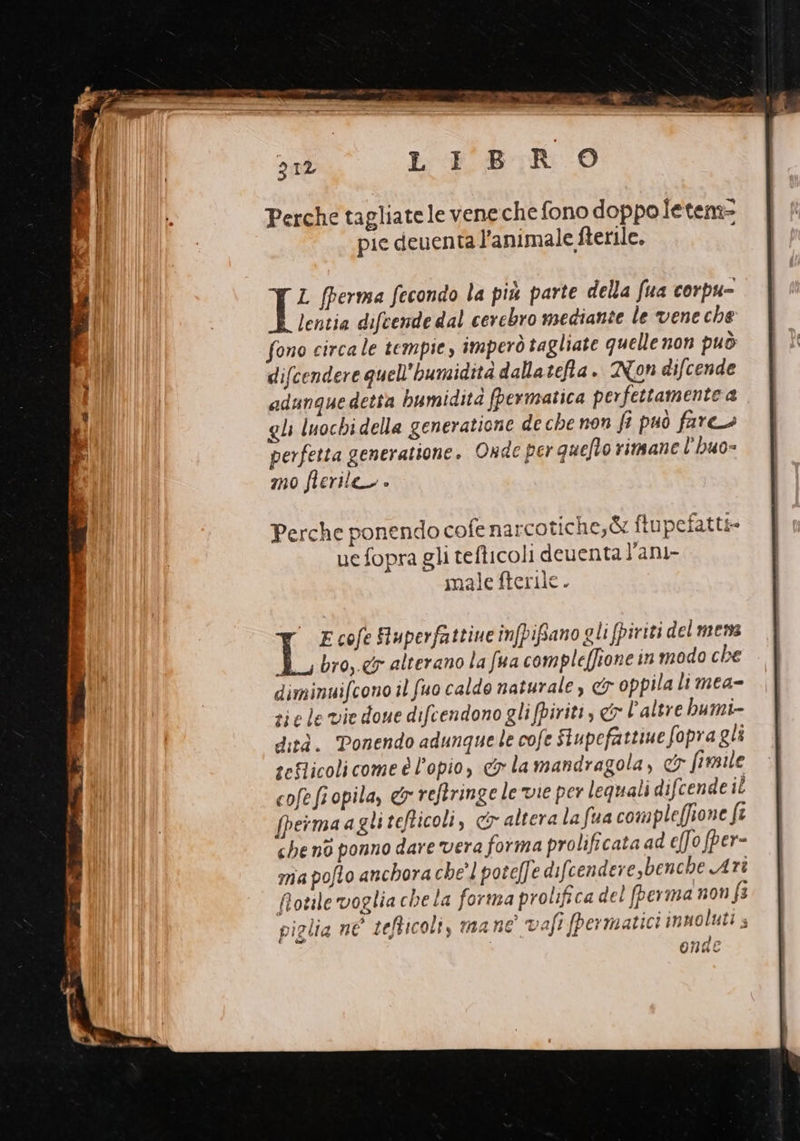 312 LIBRO
Perche tagliate le vene che ſono doppo le tem-
pie deuenta l'animale ſterile.
IL ſperma fecondo la più parte della ſua corpu-
lentia diſcende dal cerebro mediante le vene che
ſono circa le tempie, imperò tagliate quelle non può
diſcendere quell'humidità dalla teſta. Non diſcende
adunque detta humidità ſpermatica perfettamente a
gli luochi della generatione de che non ſi può fare
perfetta generatione. Onde per queſto rimane l'huo-
mo ſterile.
Perche ponendo coſe narcotiche, & ſtupefatti-
ue ſopra gli teſticoli deuenta l'ani-
male ſterile.
LE coſe ſtuperfattiue inſpiſſano gli ſpiriti del mem
bro, & alterano la ſua compleſſione in modo che
diminuiſcono il ſuo caldo naturale, & oppila li mea-
ti e le vie doue diſcendono gli ſpiriti, & l'altre humi-
dità. Ponendo adunque le coſe ſtupefattiue ſopra gli
teſticoli come è l'opio, & la mandragola, & ſimile
coſe ſi opila, & reſtringe le vie per lequali diſcende il
ſperma a gli teſticoli, & altera la ſua compleſſione ſi
che nõ ponno dare vera forma prolificata ad eſſo ſper-
ma poſto anchora che'l poteſſe diſcendere, benche Ari
ſtotile voglia che la forma prolifica del ſperma non ſi
piglia ne' teſticoli, ma ne' vaſi ſpermatici inuoluti,
onde